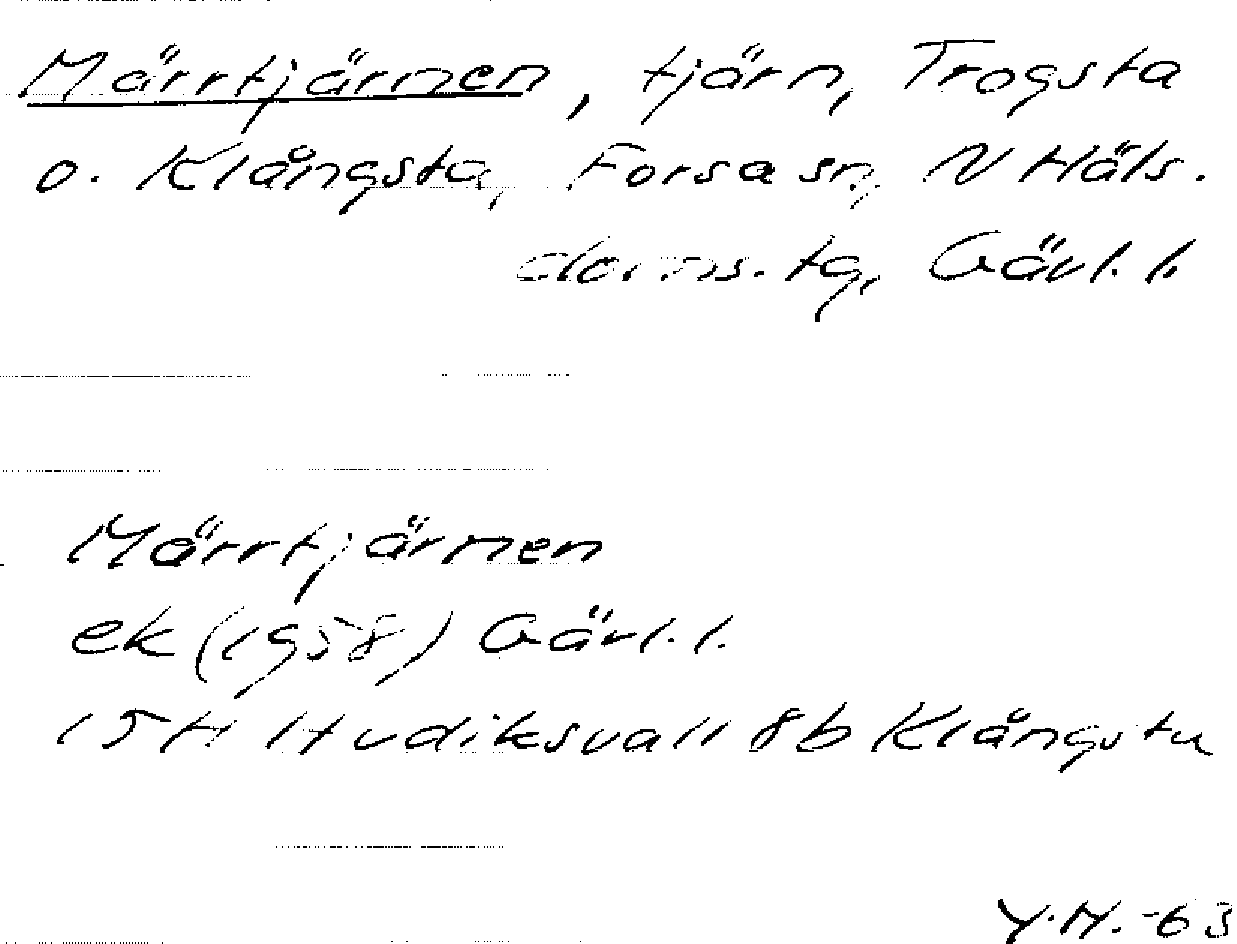 Märrtjärnen, tjärn, Trogsta
o. Klångsta, Forsa sn, N Häls.
doms. tg, Gävl. l.
Märrtjärnen
ek (1958) Gävl. l.
15H Hudiksvall 8b Klångsta
Y.H. -63